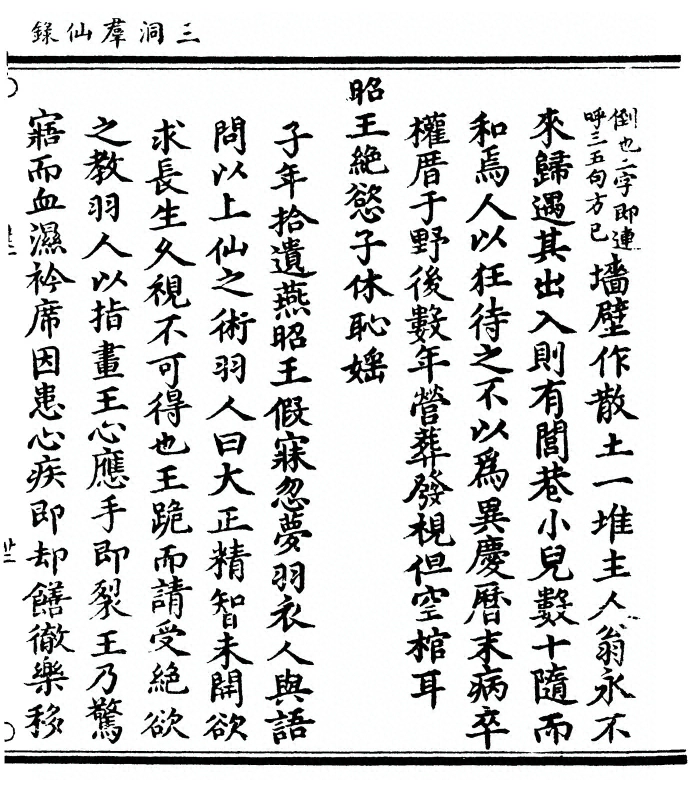 三洞羣仙錄
倒也二字即連
呼三五句方已
墻壁作散土一堆主人翁永不
來歸遇其出入則有閭巷小兒數十隨而
和焉人以狂待之不以爲異慶曆末病卒
權厝于野後數年營葬發視但空棺耳
昭王絶慾子休恥婬
子年拾遺燕昭王假寐忽夢羽衣人與語
問以上仙之術羽人曰大王精智未開欲
求長生久視不可得也王跪而請受絶欲
之教羽人以指畫王心應手即裂王乃驚
寤而血濕衿席因患心疾即却饍徹樂移